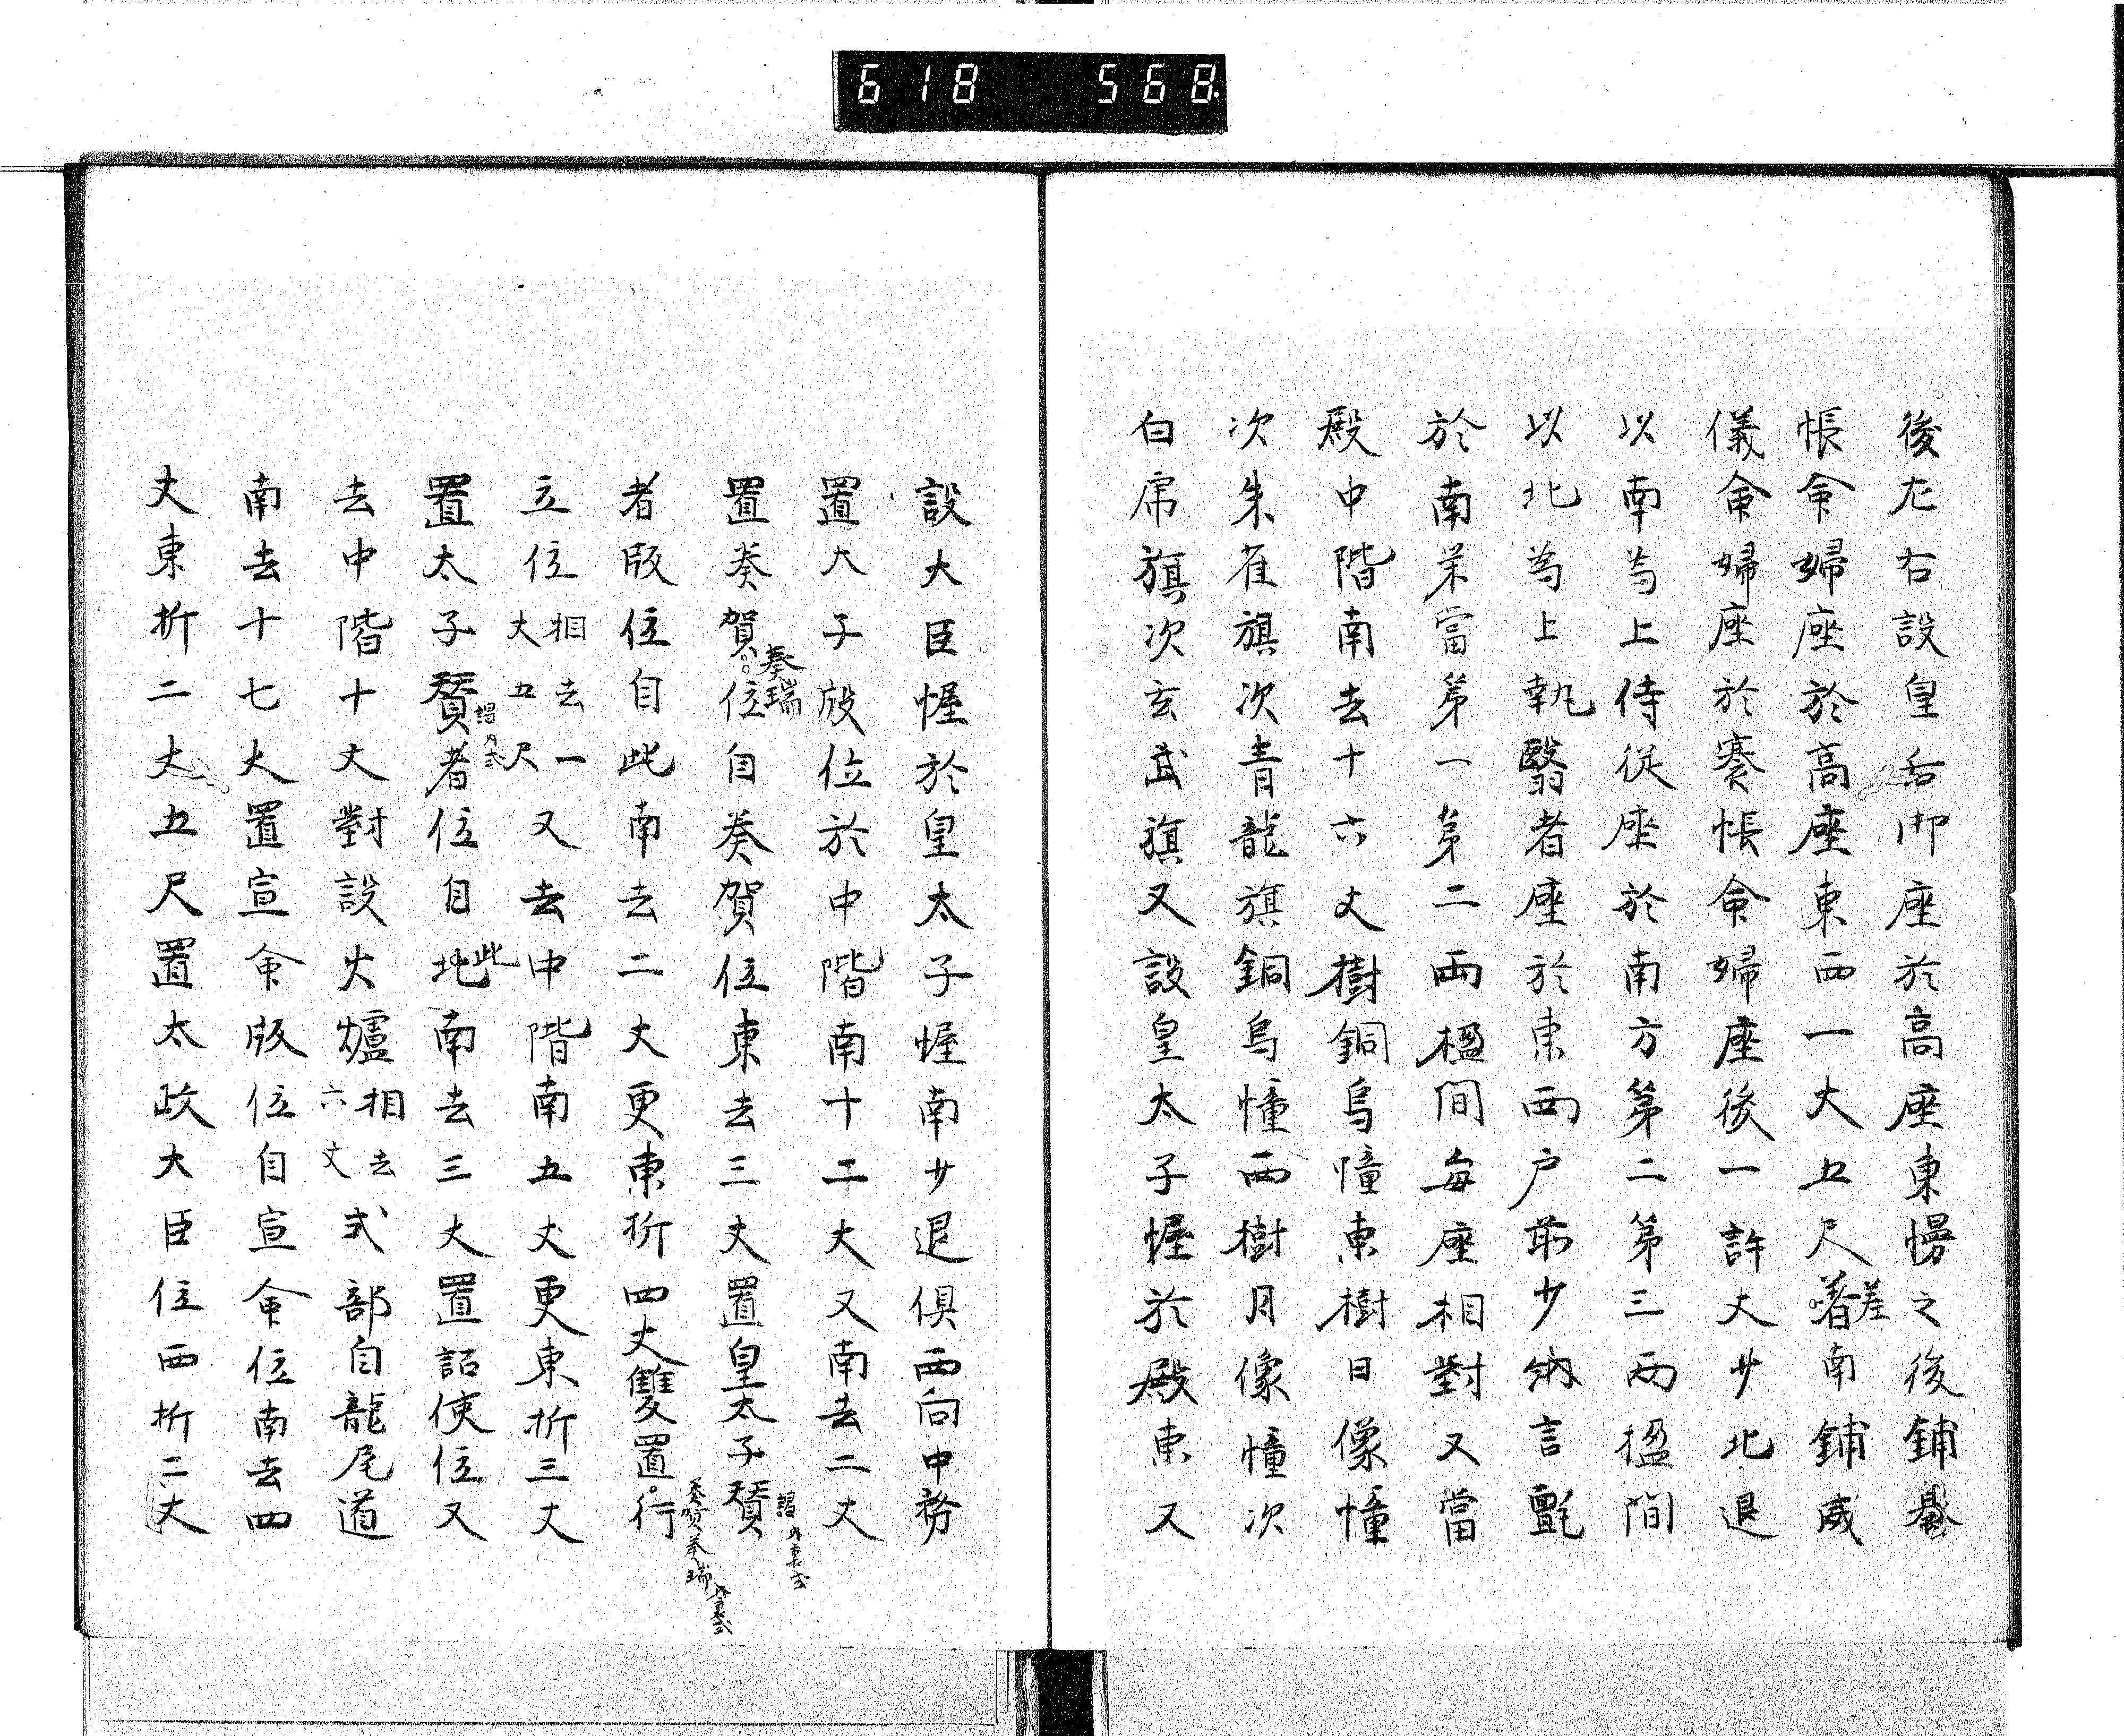 618 568
後左右設皇后御座於高座東幔之後鋪褰
帳命婦座於高座東西一丈五尺著差南鋪威
儀命婦座於褰帳命婦座後一許丈少北退
以南為上侍従座於南方第二第三両楹間
以北為上執翳者座於東西戸前少納言氈
於南栄當第一第二両楹間毎座相對又當
殿中階南去十六丈樹銅烏幢東樹日像幢
次朱雀旗次青龍旗銅烏幢西樹月像幢次
白虎旗次玄武旗又設皇太子幄於殿東又
設大臣幄於皇太子幄南少退倶西向中務
置大子版位於中階南十二丈又南去二丈
置奏賀。位自奏賀位東去三丈置皇太子賛
奏瑞
謁 内裏式
者版位自此南去二丈更東折四丈雙置。行
奏賀奏瑞 内裏式
立位相去一丈五尺又去中階南五丈更東折三丈
置太子賛者位自北南去三丈置詔使位又
謁 内式
此
去中階十丈對設火爐相去六丈式部自龍尾道
南去十七丈置宣命版位自宣命位南去四
丈東折二丈五尺置太政大臣位西折二丈